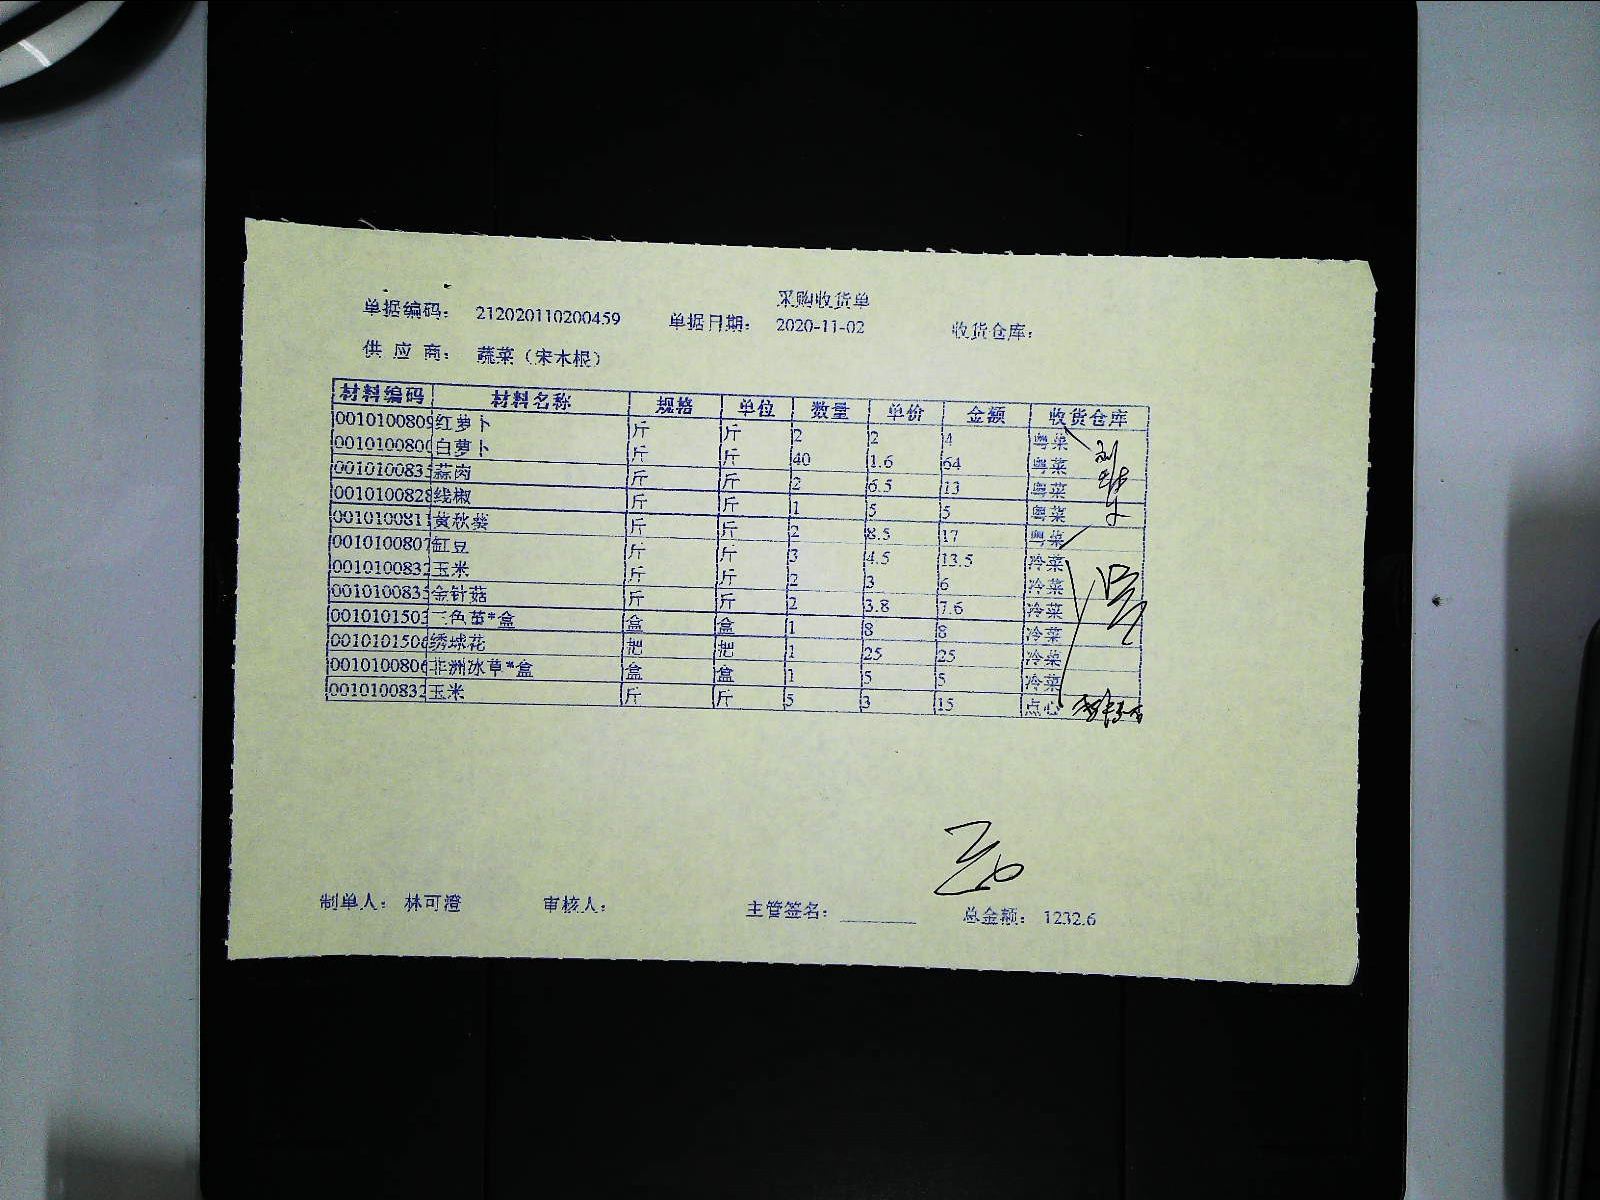 采购收货单
单据编码： 212020110200459 单据日期： 2020-11-02 收货仓库：
供 应 商： 蔬菜（宋木根）
材料编码 材料名称 规格 单位 数量 单价 金额 收货仓库
0010100809 红萝卜 斤 斤 2 2 4 粤菜
001010080 白萝卜 斤 斤 40 1.6 64 粤菜
001010083 蒜肉 斤 斤 2 6.5 13 粤菜
0010100828 线椒 斤 斤 1 5 5 粤菜
001010081 黄秋葵 斤 斤 2 8.5 17 粤菜
0010100807 缸豆 斤 斤 3 4.5 13.5 冷菜
0010100832 玉米 斤 斤 2 3 6 冷菜
001010083 金针菇 斤 斤 2 3.8 7.6 冷菜
0010101503 三色堇*盒 盒 盒 1 8 8 冷菜
001010150 绣球花 把 把 1 25 25 冷菜
0010100806 非洲冰草*盒 盒 盒 1 5 5 冷菜
0010100832 玉米 斤 斤 5 3 15 点心
制单人： 林可澄 审核人： 主管签名： 总金额： 1232.6